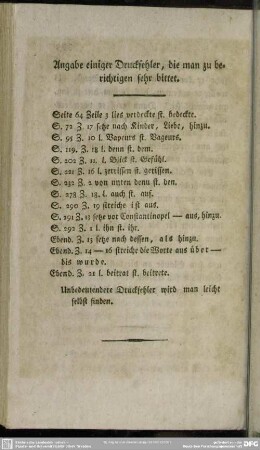 Angabe einiger Druckfehler, die man zu be-
richtigen sehr bittet.
Seite 64 Zeile 3 lies verdeckte st. bedeckte.
S. 72 Z. 17 setze nach Kinder, Liebe, hinzu.
S. 95 Z. 10 l. Vapeurs st. Vageurs.
S. 119. Z. 18 l. denn st. dem.
S. 202 Z. 11. l. Blick st. Gefühl.
S. 221 Z. 16 l. zerrissen st. gerissen.
S. 252 Z. 2 von unten denn st. den.
S. 278 Z. 18. l. auch st. auf.
S. 290 Z. 19 streiche ist aus.
S. 291 Z. 12 setze vor Constantinopel — aus, hinzu.
S. 292 Z. 1 l. ihn st. ihr.
Ebend. Z. 13 setze nach dessen, als hinzu.
Ebend. Z. 14 — 16 streiche die Worte aus über —
bis wurde.
Ebend. Z. 21 l. beitrat st. beitrete.
Unbedeutendere Druckfehler wird man leicht
selbst finden.